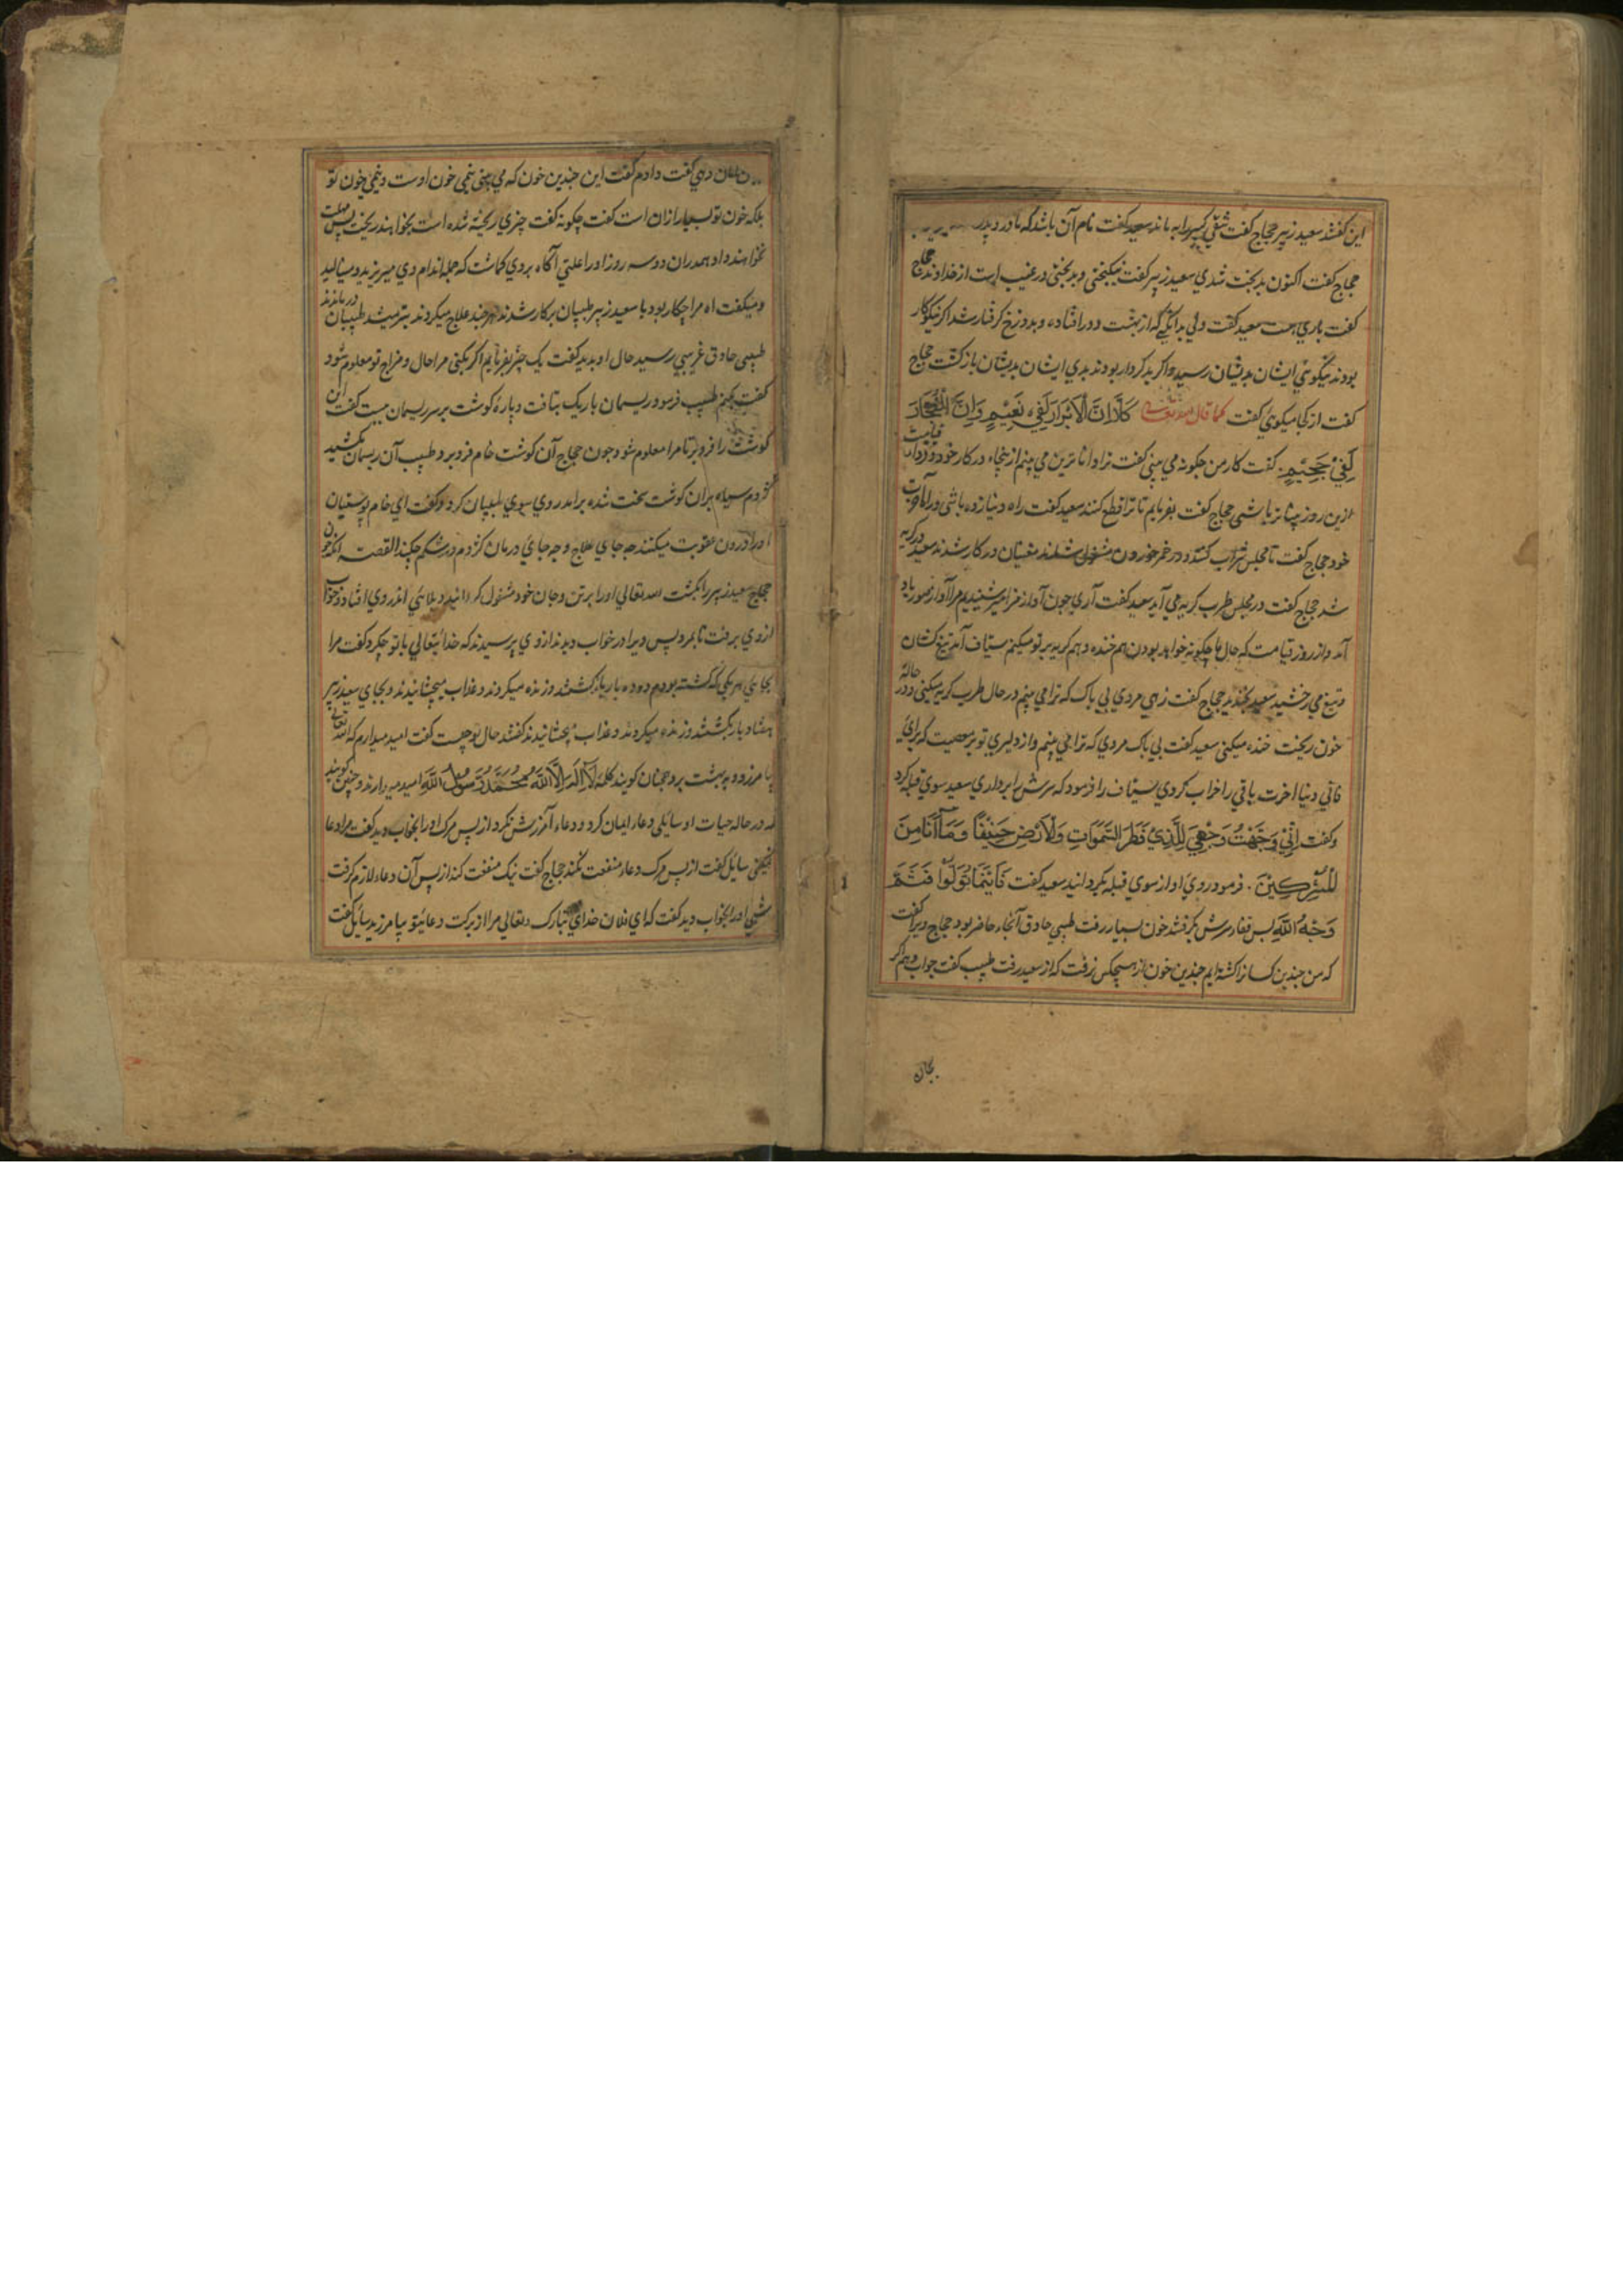 این گفتند سعید زبیر حجاج گفت شقی کسیرا به ماند سعید گفت نام آن باشد که مادر و پدر
حجاج گفت اکنون بدبخت شدی سعید زبیر گفت نیکبختی و بدبختی در غیب است از خداوند حجاج
گفت باری هست سعید گفت ولی بدانکه از بهشت دور افتاده و بدوزخ گرفتار شد اگر نیکوکار
بودند نیکوئی ایشان بدیشان رسید و اگر بدکردار بودند بدی ایشان بدیشان بازگشت حجاج
گفت از کجا میگوئی گفت کما قال الله تعالی كَلَّا اِنَّ الْاَبْرَارَ لَفِي نَعِيْمٍ وَاِنَّ الْفُجَّارَ
لَفِيْ جَحِيْمٍ گفت کار من چکونه می بینی گفت ترا داناترین می بینم از بنجاه در کار خود و فردا قیامت
ازین روز بیشتر باشی حجاج گفت بفرمایم تا ترا قطع کنند سعید گفت راه دنیا زده باشی و راه آخرت
خود حجاج گفت تا مجلس شراب کنند در خمر خوردن مشغول شدند مغنیان در کار شدند سعید در گریه
شد حجاج گفت در مجلس طرب گریه می آید سعید گفت آری چون آواز مزامیر شنیدیم مرا آواز صور یاد
آمد و از روز قیامت که حال ما چکونه خواهد بودن هم خنده و هم گریه بر تو میکنم سیاف آمد تیغ کشان
و تیغ می رخشید سعید بخندید حجاج گفت زهی مردی بی باک که ترا می بینم در حال طرب گریه میکنی و در حالة
خون ریخت خنده میکنی سعید گفت بی باک مردی که ترا می بینم و از دلیری تو بر معصیت که برای
فانی دنیا اخرت باقی را خراب کردی سیاف را فرمود که سرش را برداری سعید سوی قبله کرد
وگفت اِنِّيْ وَجَّهْتُ وَجْهِيَ لِلَّذِيْ فَطَرَ السَّمٰوَاتِ وَالْاَرْضَ حَنِيْفًا وَمَا اَنَا مِنَ
الْمُشْرِكِيْنَ . فرمود روی او از سوی قبله بگردانید سعید گفت فَاَيْنَمَا تُوَلُّوْا فَثَمَّ
وَجْهُ اللّٰهِ پس قفا سرش بگرفتند خون بسیار رفت طبیبی حاذق آنجا حاضر بود حجاج ویرا گفت
که من چندین کسانرا کشته ایم چندین خون از هیچکس نرفت که از سعید رفت طبیب گفت جواب دهم اگر
بجان
امان دهی گفت دادم گفت این چندین خون که می بینی نیمی خون اوست و نیمی خون تو
بلکه خون تو بسیار ازان است گفت چکونه گفت چیزی ریخته شده است بخواهند ریخت پس مهلت
نخواهند داد همدران دو سه روز او را علتی آکاه بروی کماشت که جمله اندام وی میریزید و مینالید
و میگفت اه مرا چکار بود با سعید زبیر طبیبان برکار شدند هرچند علاج میکردند بتر میشد طبیبان درماندند
طبیبی حاذق غریبی رسید حال او بدید گفت یک چیز بفرمایم اگر بکنی مرا حال و مزاج تو معلوم شود
گفت بکنم طبیب فرمود ریسمان باریک بتافت و پارۀ گوشت بر سر ریسمان ببست گفت این
گوشت را فرو بر تا مرا معلوم شود چون حجاج آن گوشت خام فرو برد طبیب آن ریسمان بکشید
کژدم سیاه بران گوشت سخت شده برامد روی سوی طبیبان کرد و گفت ای خام پوستینان
او را درون عقوبت میکنند چه جای علاج و چه جای درمان کژدم در شکم چکند القصه انکه چون
حجاج سعید زبیر را بکشت الله تعالی او را برتن و جان خود مشغول کردانید و بلائی اندر وی افتاد و خواب
از وی برفت تا بمرد پس ویرا در خواب دیدند از وی پرسیدند که خدائیتعالی با تو چکرد گفت مرا
بجای هر یکی که کشته بودم ده ده بار بکشتند و زنده میکردند و عذاب میچشانیدند و بجای سعید زبیر
هفتاد بار بکشتند و زنده میکردند و عذاب بچشانیدند گفتند حال تو چیست گفت امید میدارم که الله تعالی
بیامرزد و به بهشت برد چنان گویند کلمه لَا اِلٰهَ اِلَّا اللّٰهُ مُحَمَّدٌ رَسُوْلُ اللّٰهِ امید میدارند و چنین گویند
که در حاله حیات او سایلی دعا ایمان کرد و دعاء آمرزش نکرد از پس مرک او را بخواب دید گفت مرا دعا
نمیکنی سایل گفت از پس مرک دعا منفعت نکند حجاج گفت نیک منفعت کند از پس آن دعا لازم گرفت
شبی او را بخواب دید گفت که ای فلان خدای تبارک و تعالی مرا از برکت دعائیتو بیامرزید سایل گفت